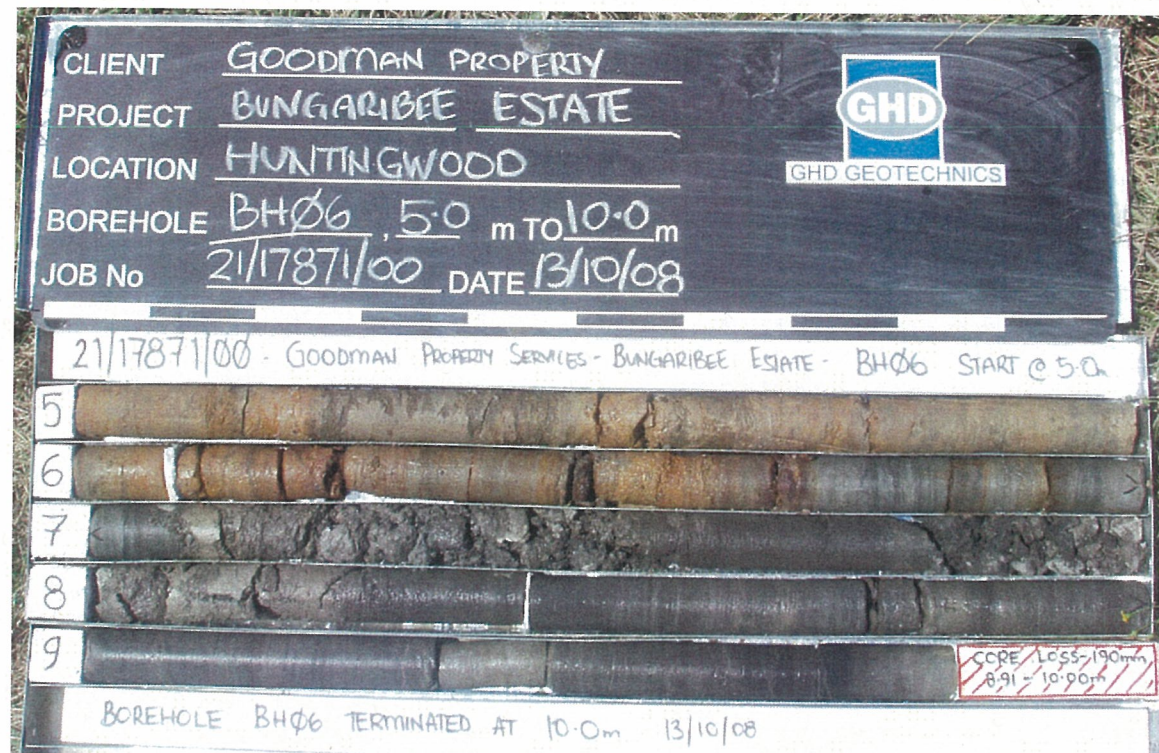 CLIENT GOODMAN PROPERTY
PROJECT BUNGARIBEE ESTATE
LOCATION HUNTINGWOOD
BOREHOLE BHØ6, 5.0 m TO 10.0 m
JOB No 21/17871/00 DATE 13/10/08
GHD
GHD GEOTECHNICS
21/17871/ØØ - GOODMAN PROPERTY SERVICES - BUNGARIBEE ESTATE - BHØ6 START @ 5.0m
5
6
7
8
9
CORE LOSS-190mm
8.91 - 10.00m
BOREHOLE BHØ6 TERMINATED AT 10.0m 13/10/08